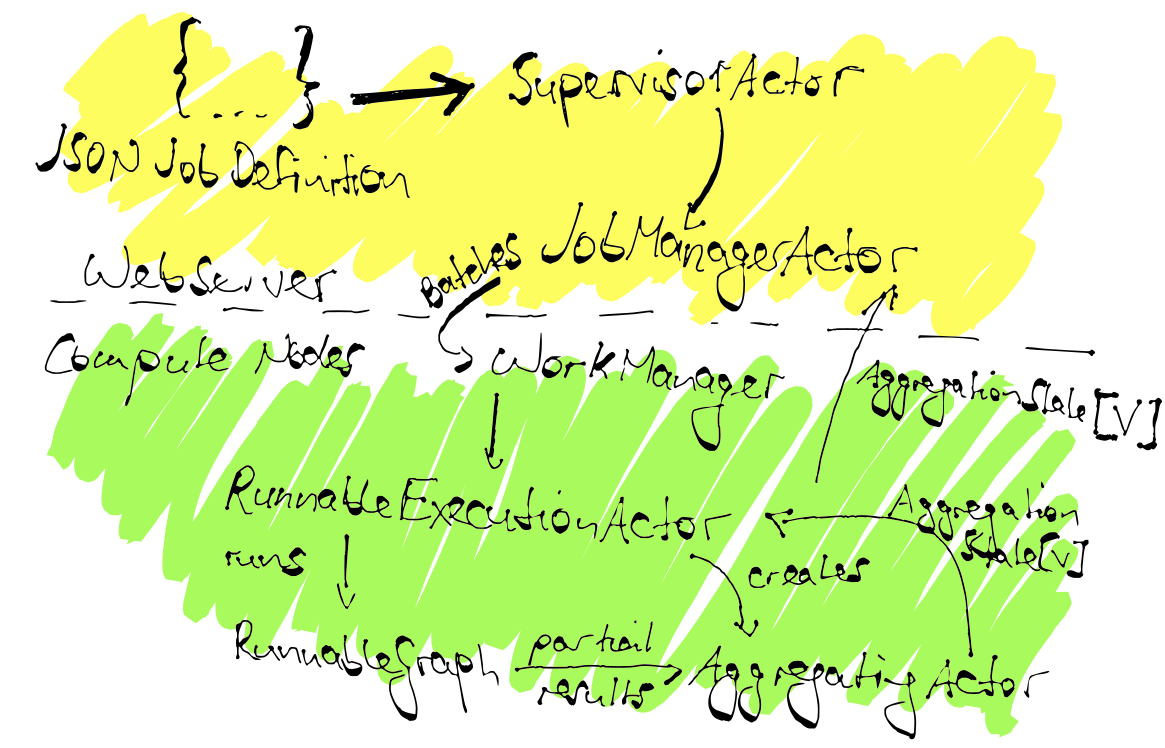 { ... }
SupervisorActor
JSON Job Definition
JobManagerActor
Batches
WebServer
Compute Nodes
WorkManager
AggregationState[V]
RunnableExecutionActor
Aggregation
State[V]
runs
creates
RunnableGraph
partiail
results
Aggregating Actor